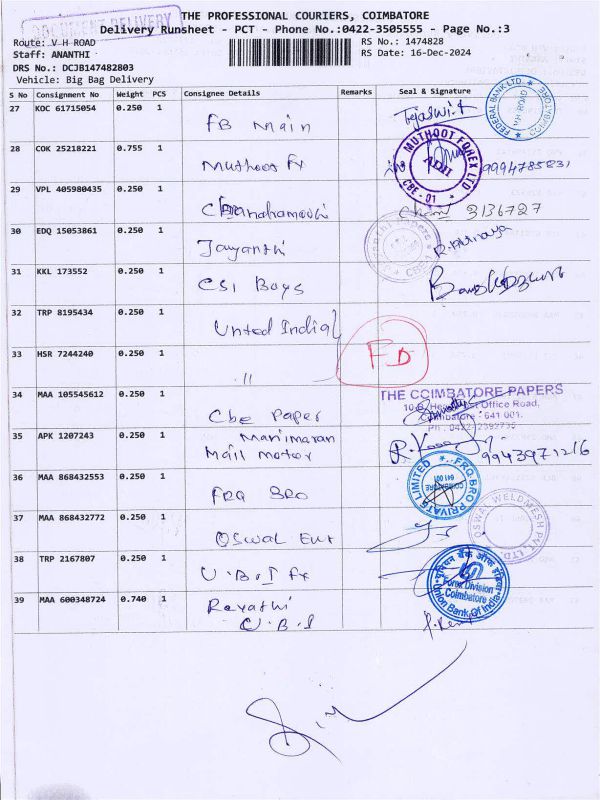 DOCUMENT DELIVERY
THE PROFESSIONAL COURIERS, COIMBATORE
Delivery Runsheet - PCT - Phone No.:0422-3505555 - Page No.:3
Route: V H ROAD
RS No.: 1474828
Staff: ANANTHI
RS Date: 16-Dec-2024
DRS No.: DCJB147482803
Vehicle: Big Bag Delivery
S No Consignment No Weight PCS Consignee Details Remarks Seal & Signature
27 KOC 61715054 0.250 1 FB Main
FEDERAL BANK LTD. V.H. ROAD
28 COK 25218221 0.755 1 Muthoot Fx 9994785831
MUTHOOT FOREX LTD ADII CBE - 01
29 VPL 405980435 0.250 1 3136727
30 EDQ 15053861 0.250 1 Jayanthi
31 KKL 173552 0.250 1 CSI Boys
32 TRP 8195434 0.250 1 United India
33 HSR 7244240 0.250 1 "
FD
34 MAA 105545612 0.250 1 Cbe Paper
THE COIMBATORE PAPERS
Office Road,
Coimbatore - 641 001.
35 APK 1207243 0.250 1 Manimaran
Mail motor 9943971216
36 MAA 868432553 0.250 1 FRQ BRO
FRQ BRO PRIVATE LIMITED COIMBATORE 641 001
37 MAA 868432772 0.250 1 OSwal Ent
OSWAL WELDMESH PVT. LTD.
38 TRP 2167807 0.250 1 U.B.I Fx
यूनियन बैंक ऑफ इंडिया
Forex Division
Coimbatore
Union Bank Of India
39 MAA 600348724 0.740 1 Revathi
U.B.I